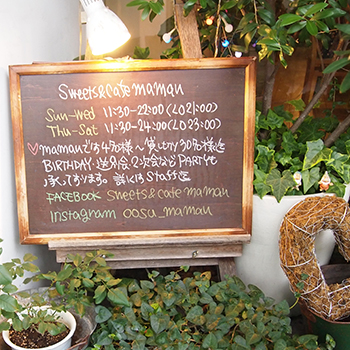 Sweets&Cafe maman
Sun-Wed 11:30-22:00(LO21:00)
Thu-Sat 11:30-24:00(LO23:00)
mamanでは4名様〜貸切り30名様迄
BIRTHDAY・送別会、2次会などPARTYも
承っております。詳しくはSTAFF迄
FACEBOOK sweets&cafe maman
instagram oosu_maman